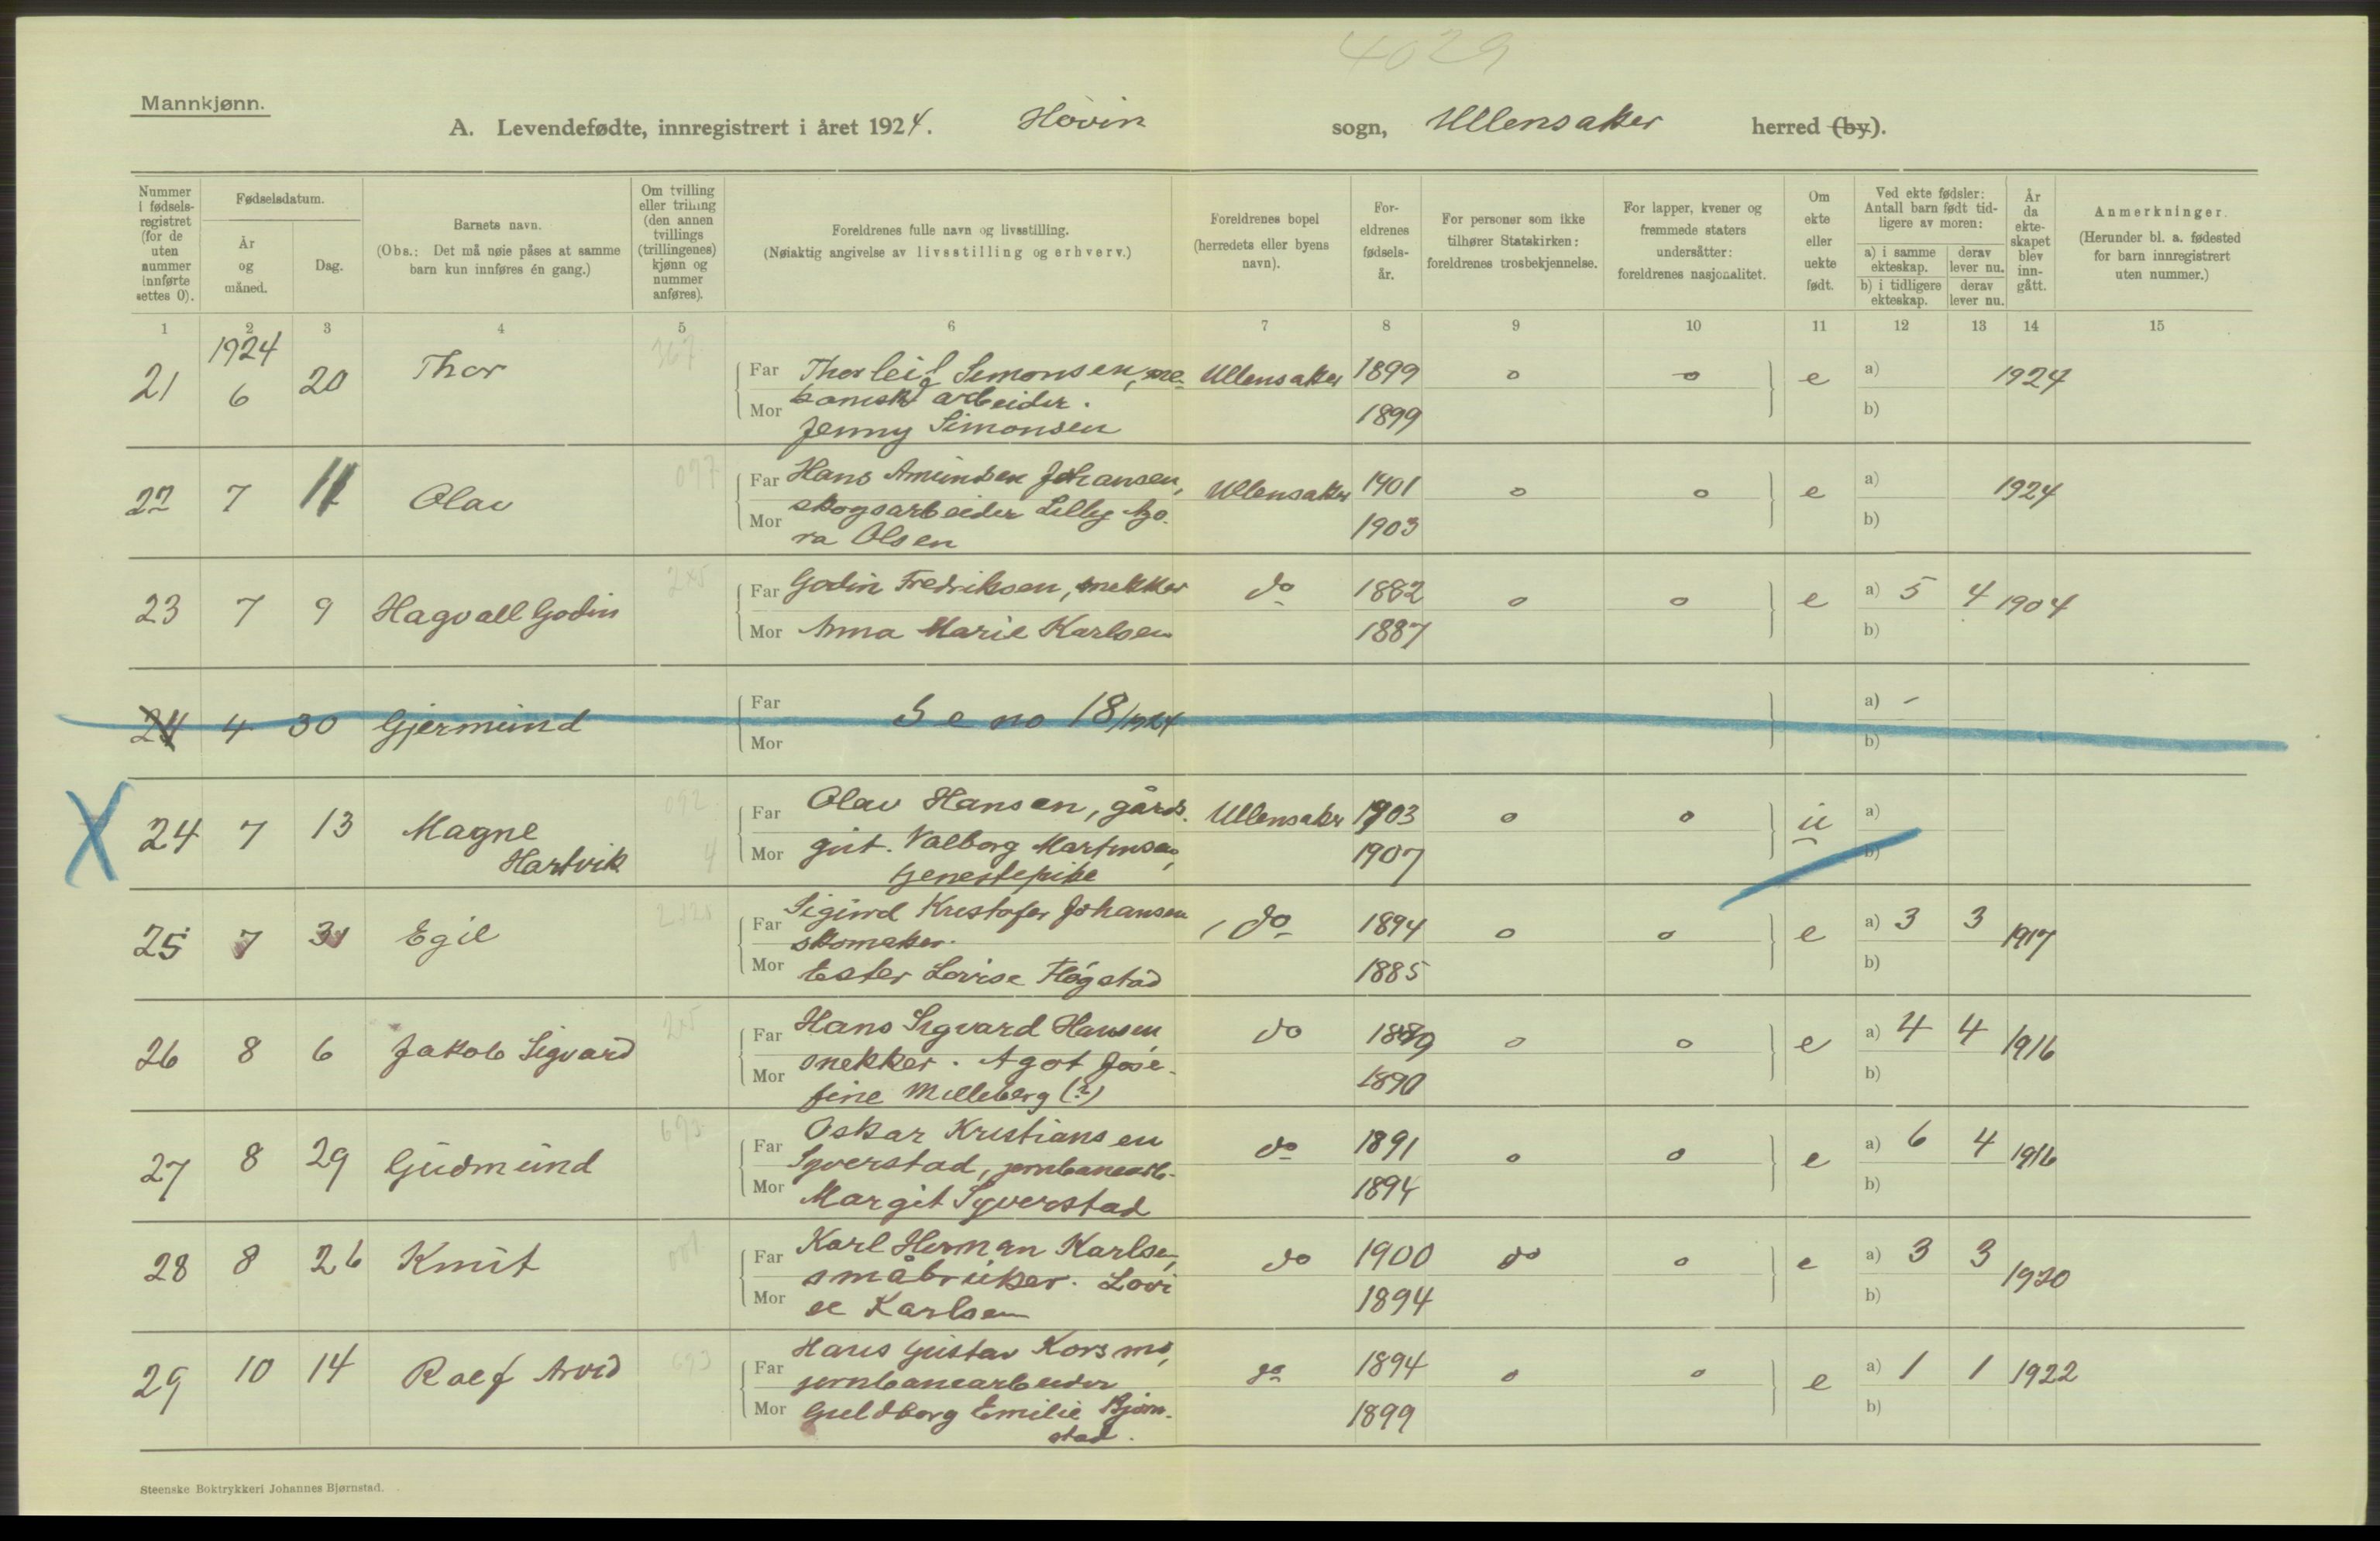 4029
Mannkjønn.
A. Levendefødte, innregistrert i året 1924. Hovin sogn, Ullensaker herred (by).
Nummer i fødsels- registret (for de uten nummer innførte settes 0).
Fødselsdatum.
År og måned.
Dag.
Barnets navn.
(Obs.: Det må nøie påses at samme barn kun innføres én gang.)
Om tvilling eller trilling (den annen tvillings (trillingenes) kjønn og nummer anføres).
Foreldrenes fulle navn og livsstilling.
(Nøiaktig angivelse av livsstilling og erhverv.)
Foreldrenes bopel (herredets eller byens navn).
For- eldrenes fødsels- år.
For personer som ikke tilhører Statskirken: foreldrenes trosbekjennelse.
For lapper, kvener og fremmede staters undersåtter: foreldrenes nasjonalitet.
Om ekte eller uekte født.
Ved ekte fødsler: Antall barn født tid- ligere av moren:
a) i samme ekteskap. derav lever nu.
b) i tidligere ekteskap. derav lever nu.
År da ekte- skapet blev inn- gått.
Anmerkninger.
(Herunder bl. a. fødested for barn innregistrert uten nummer.)
1 2 3 4 5 6 7 8 9 10 11 12 13 14 15
1924
367
21 6 20 Thor Far Thorleif Simonsen, me- Ullensaker 1899 o o e a) 1924
kanisk arbeider.
Mor Jenny Simonsen 1899 b)
077
22 7 11 Olav Far Hans Amundsen Johansen, Ullensaker 1901 o o e a) 1924
skogsarbeider Lilly
Mor ra Olsen 1903 b)
205
23 7 9 Hagvall Godin Far Godin Fredriksen, snekker do 1882 o o e a) 5 4 1904
Mor Anna Marie Karlsen 1887 b)
24 4 30 Gjermund Far Se no 18/1924 a) -
Mor b)
X 24 7 13 Magne Hartvik Far Olav Hansen, gårds- Ullensaker 1903 o o u a)
092 4
Mor gut. Valborg Martinsen, 1907 b)
tjenestepike
25 7 31 Egil Far Sigurd Kristofer Johansen do 1894 o o e a) 3 3 1917
skomaker.
Mor Ester Lovise Høgstad 1885 b)
205
26 8 6 Jakob Sigvard Far Hans Sigvard Hansen do 1889 o o e a) 4 4 1916
snekker. Agot Jose-
Mor fine Milleberg (?) 1890 b)
693
27 8 29 Gudmund Far Oskar Kristiansen do 1891 o o e a) 6 4 1916
Syverstad, jernbanearb.
Mor Margit Syverstad 1894 b)
001
28 8 26 Knut Far Karl Herman Karlsen, do 1900 do o e a) 3 3 1920
småbruker. Lovi
Mor se Karlsen 1894 b)
693
29 10 14 Ralf Arvid Far Hans Gustav Korsmo, do 1894 o o e a) 1 1 1922
jernbanearbeider
Mor Guldborg Emilie Bjørn- 1899 b)
stad.
Steenske Boktrykkeri Johannes Bjørnstad.